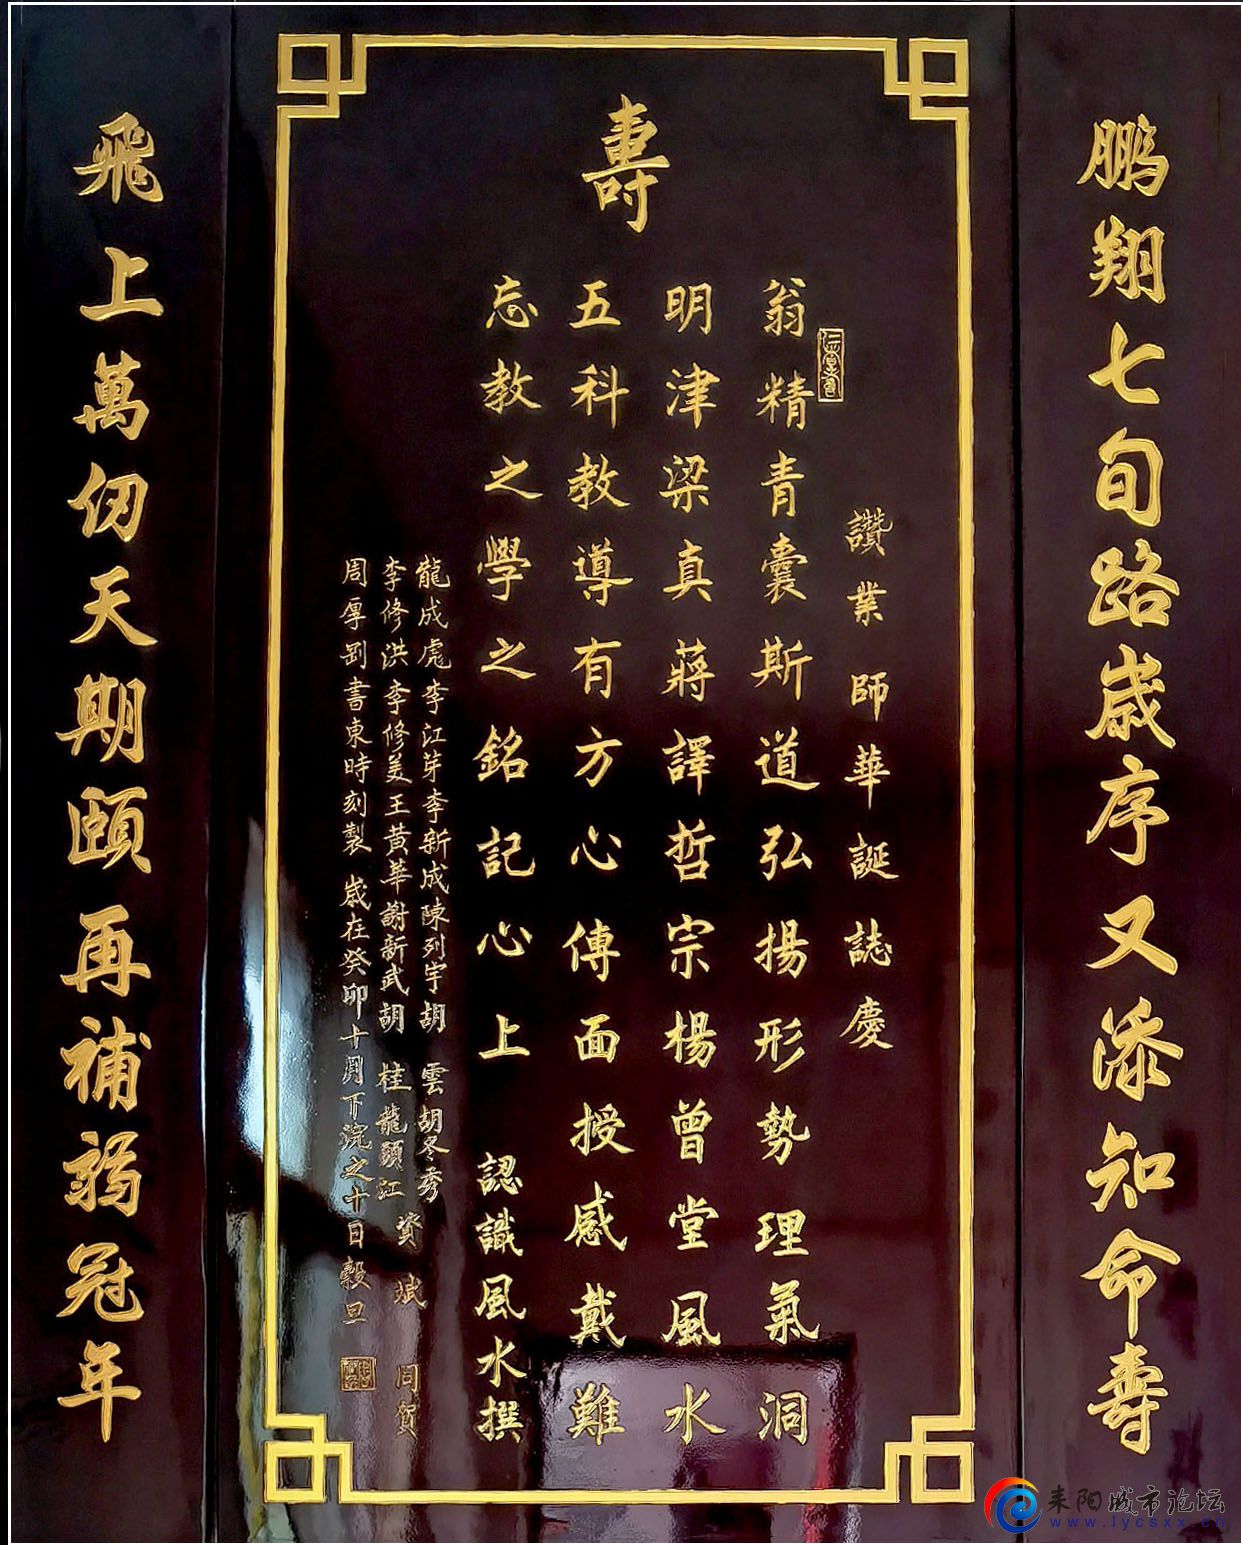 鹏翔七旬路歲序又添知命壽
壽
讚業 師華誕誌慶
翁精青囊斯道弘揚形勢理氣洞
明津梁真蔣譯哲宗楊曾堂風水
五科教導有方心傳面授感戴難
忘教之學之銘記心上 認識風水撰
龍成虎李江芽李新成陳列宇胡雲胡冬秀 資斌 同賀
李修洪李修美王黃華謝新武胡桂龍顾江
周厚剛書東時刻製 歲在癸卯十月下浣之十日穀旦
飛上萬仞天期頤再補弱冠年
耒阳城市论坛
www.lycsxx.cn